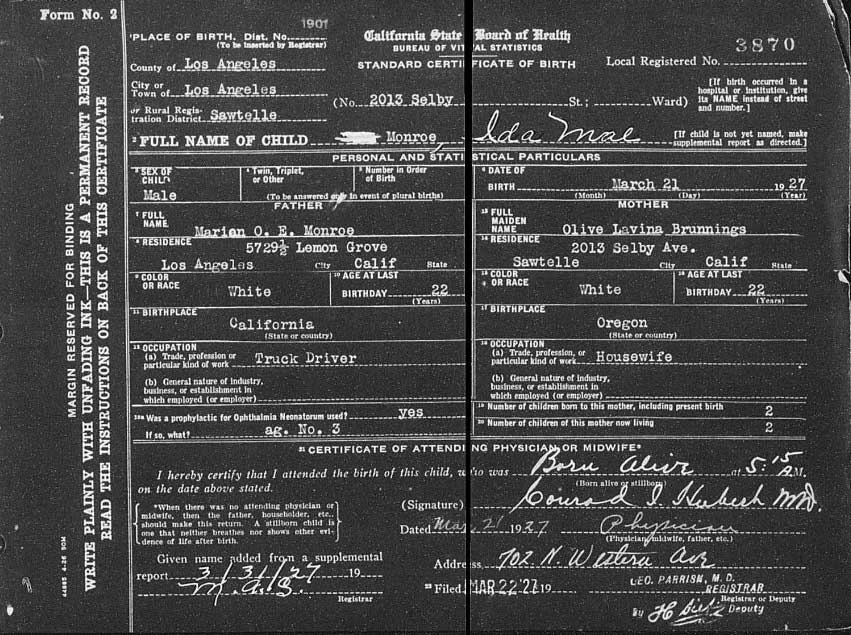 Form No. 2
1901
PLACE OF BIRTH. Dist. No.
(To be inserted by Registrar)
California State Board of Health
BUREAU OF VITAL STATISTICS
STANDARD CERTIFICATE OF BIRTH
Local Registered No. 3870
County of Los Angeles
City or Town of Los Angeles
or Rural Registration District Sawtelle
(No. 2013 Selby St.; Ward)
[If birth occurred in a
hospital or institution, give
its NAME instead of street
and number.]
2 FULL NAME OF CHILD Monroe, Ida Mae
[If child is not yet named, make
supplemental report as directed.]
PERSONAL AND STATISTICAL PARTICULARS
3 SEX OF CHILD Male
4 Twin, Triplet, or Other
5 Number in Order of Birth
(To be answered only in event of plural births)
6 DATE OF BIRTH March 21 1927
(Month) (Day) (Year)
FATHER
7 FULL NAME Marion O. E. Monroe
8 RESIDENCE 5729½ Lemon Grove
Los Angeles City Calif State
9 COLOR OR RACE White
10 AGE AT LAST BIRTHDAY 22
(Years)
11 BIRTHPLACE
California
(State or country)
12 OCCUPATION
(a) Trade, profession or
particular kind of work Truck Driver
(b) General nature of industry,
business, or establishment in
which employed (or employer)
MOTHER
13 FULL MAIDEN NAME Olive Lavina Brunnings
14 RESIDENCE 2013 Selby Ave.
Sawtelle City Calif State
15 COLOR OR RACE White
16 AGE AT LAST BIRTHDAY 22
(Years)
17 BIRTHPLACE
Oregon
(State or country)
18 OCCUPATION
(a) Trade, profession, or
particular kind of work Housewife
(b) General nature of industry,
business, or establishment in
which employed (or employer)
Was a prophylactic for Ophthalmia Neonatorum used? yes
If so, what? ag. No. 3
19 Number of children born to this mother, including present birth 2
20 Number of children of this mother now living 2
21 CERTIFICATE OF ATTENDING PHYSICIAN OR MIDWIFE*
I hereby certify that I attended the birth of this child, who was Born alive at 5:15 A M.
(Born alive or stillborn)
on the date above stated.
*When there was no attending physician or
midwife, then the father, householder, etc.,
should make this return. A stillborn child is
one that neither breathes nor shows other evi-
dence of life after birth.
(Signature) Conrad I. Hubert MD.
Dated Mar. 21 1927 Physician
(Physician, midwife, father, etc.)
Given name added from a supplemental
report 3/31/27 19
Registrar
Address 702 N. Western Ave
22 Filed MAR 22 '27 19
GEO. PARRISH, M. D.
REGISTRAR
Registrar or Deputy
By Deputy
MARGIN RESERVED FOR BINDING
WRITE PLAINLY WITH UNFADING INK—THIS IS A PERMANENT RECORD
READ THE INSTRUCTIONS ON BACK OF THIS CERTIFICATE